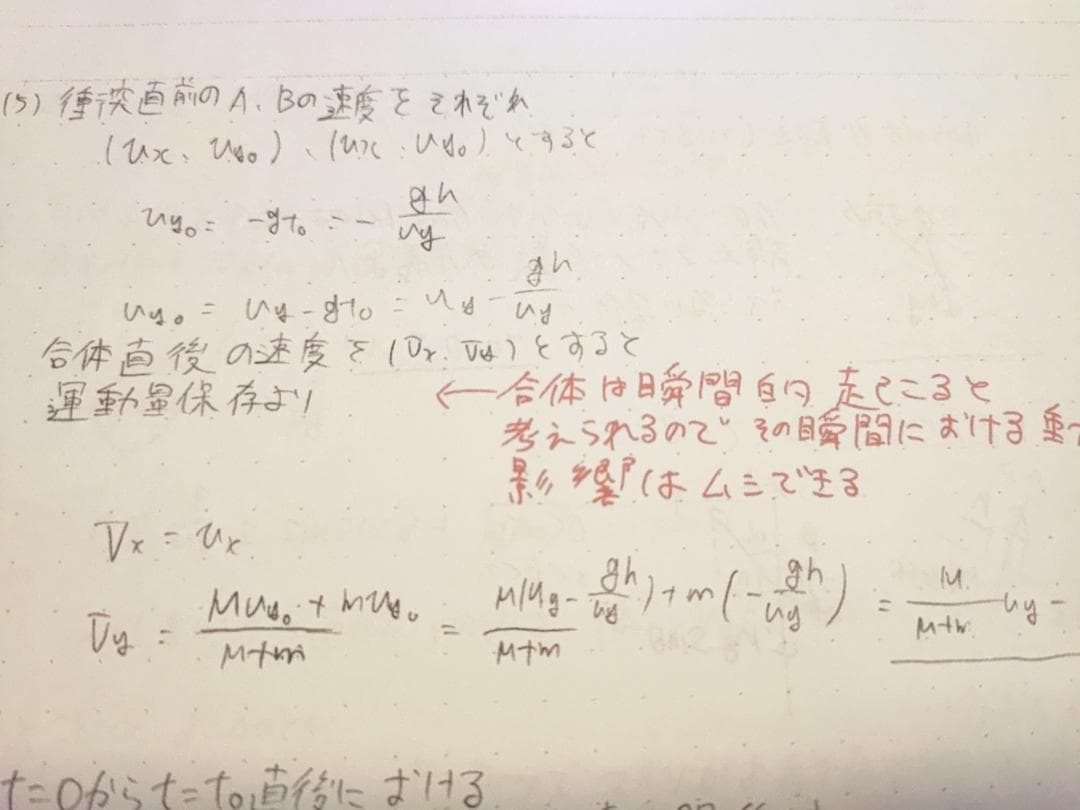 (5) 衝突直前のA、Bの速度をそれぞれ
(ux、uy₀)、(ux、uy₀)とすると
uy₀ = -gt₀ = - gh/uy
uy₀ = uy - gt₀ = uy - gh/uy
合体直後の速度を(Vx、Vy)とすると
運動量保存より
←合体は瞬間的に起こると
考えられるのでその瞬間における重
影響はムシできる
Vx = ux
Vy = (Muy₀ + muy₀)/(M+m) = (M(uy - gh/uy) + m(- gh/uy))/(M+m) = M/(M+m) uy -
t=0からt=t₀直後における